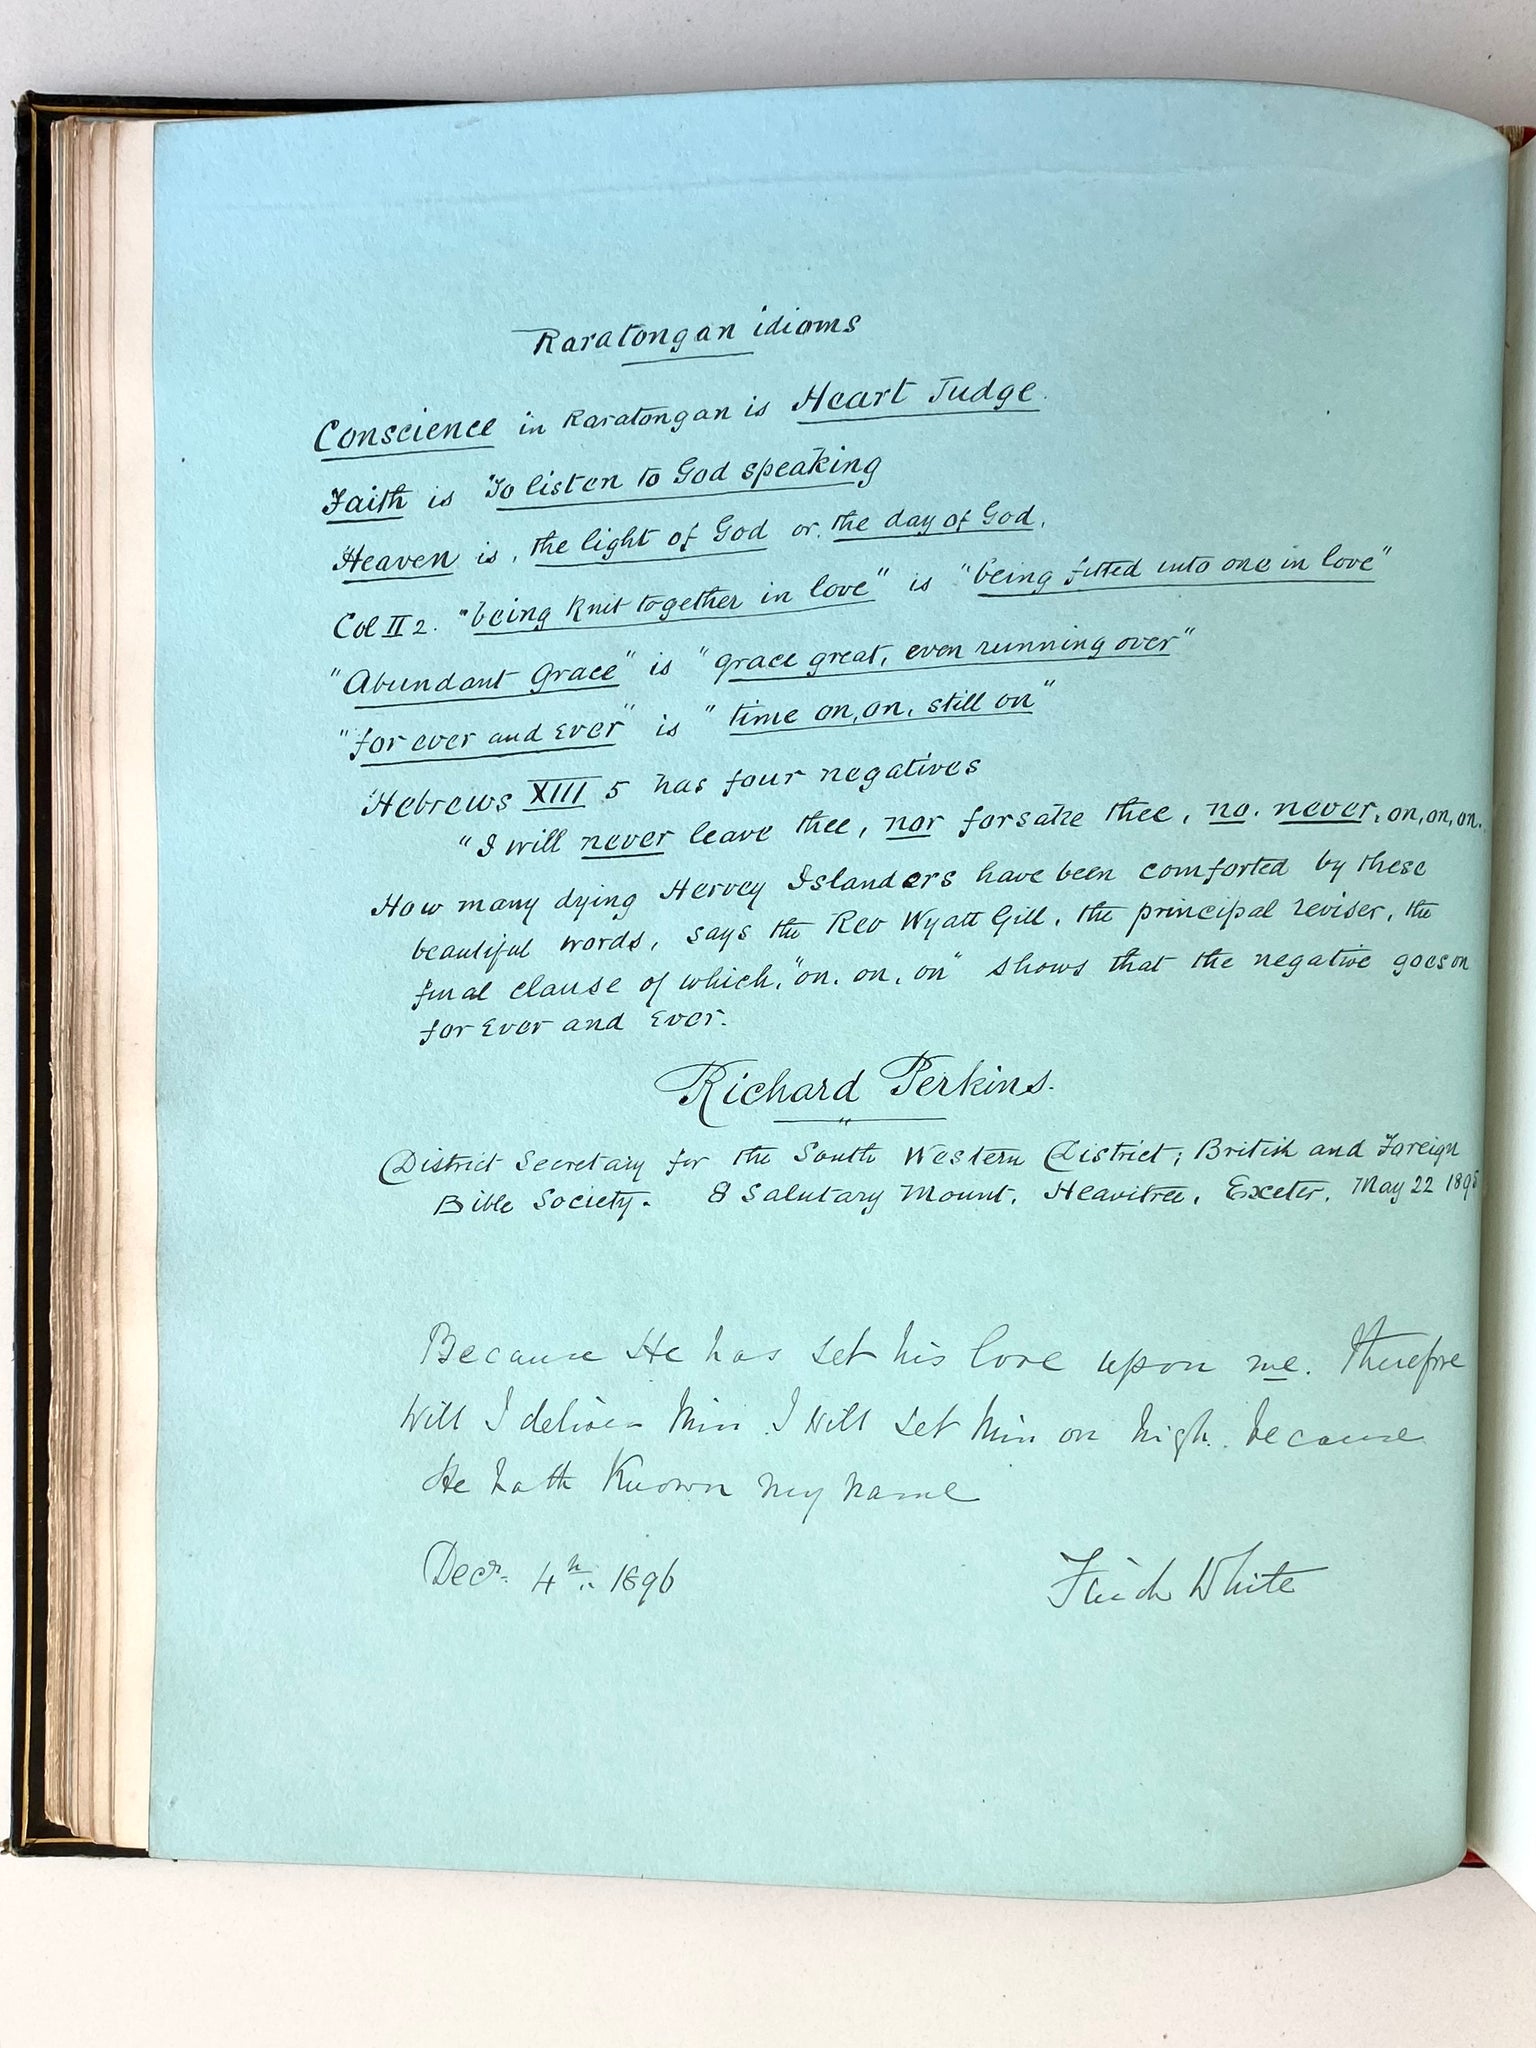 Raratongan idioms
Conscience in Raratongan is Heart Judge.
Faith is To listen to God speaking
Heaven is, the light of God or. the day of God.
Col II 2. "being knit together in love" is "being fitted into one in love"
"Abundant Grace" is "grace great, even running over"
"for ever and Ever" is "time on, on, still on"
Hebrews XIII 5 has four negatives
"I will never leave thee, nor forsake thee, no. never, on, on, on.
How many dying Hervey Islanders have been comforted by these
beautiful words, says the Rev Wyatt Gill, the principal reviser, the
final clause of which, "on, on, on" shows that the negative goes on
for Ever and Ever.
Richard Perkins.
District Secretary for the South Western District; British and Foreign
Bible Society. 8 Salutary Mount, Heavitree, Exeter, May 22
Because He has set his love upon me. Therefore
will I deliver him I will set him on high. because
He hath Known my name
Decr. 4th. 1896
White